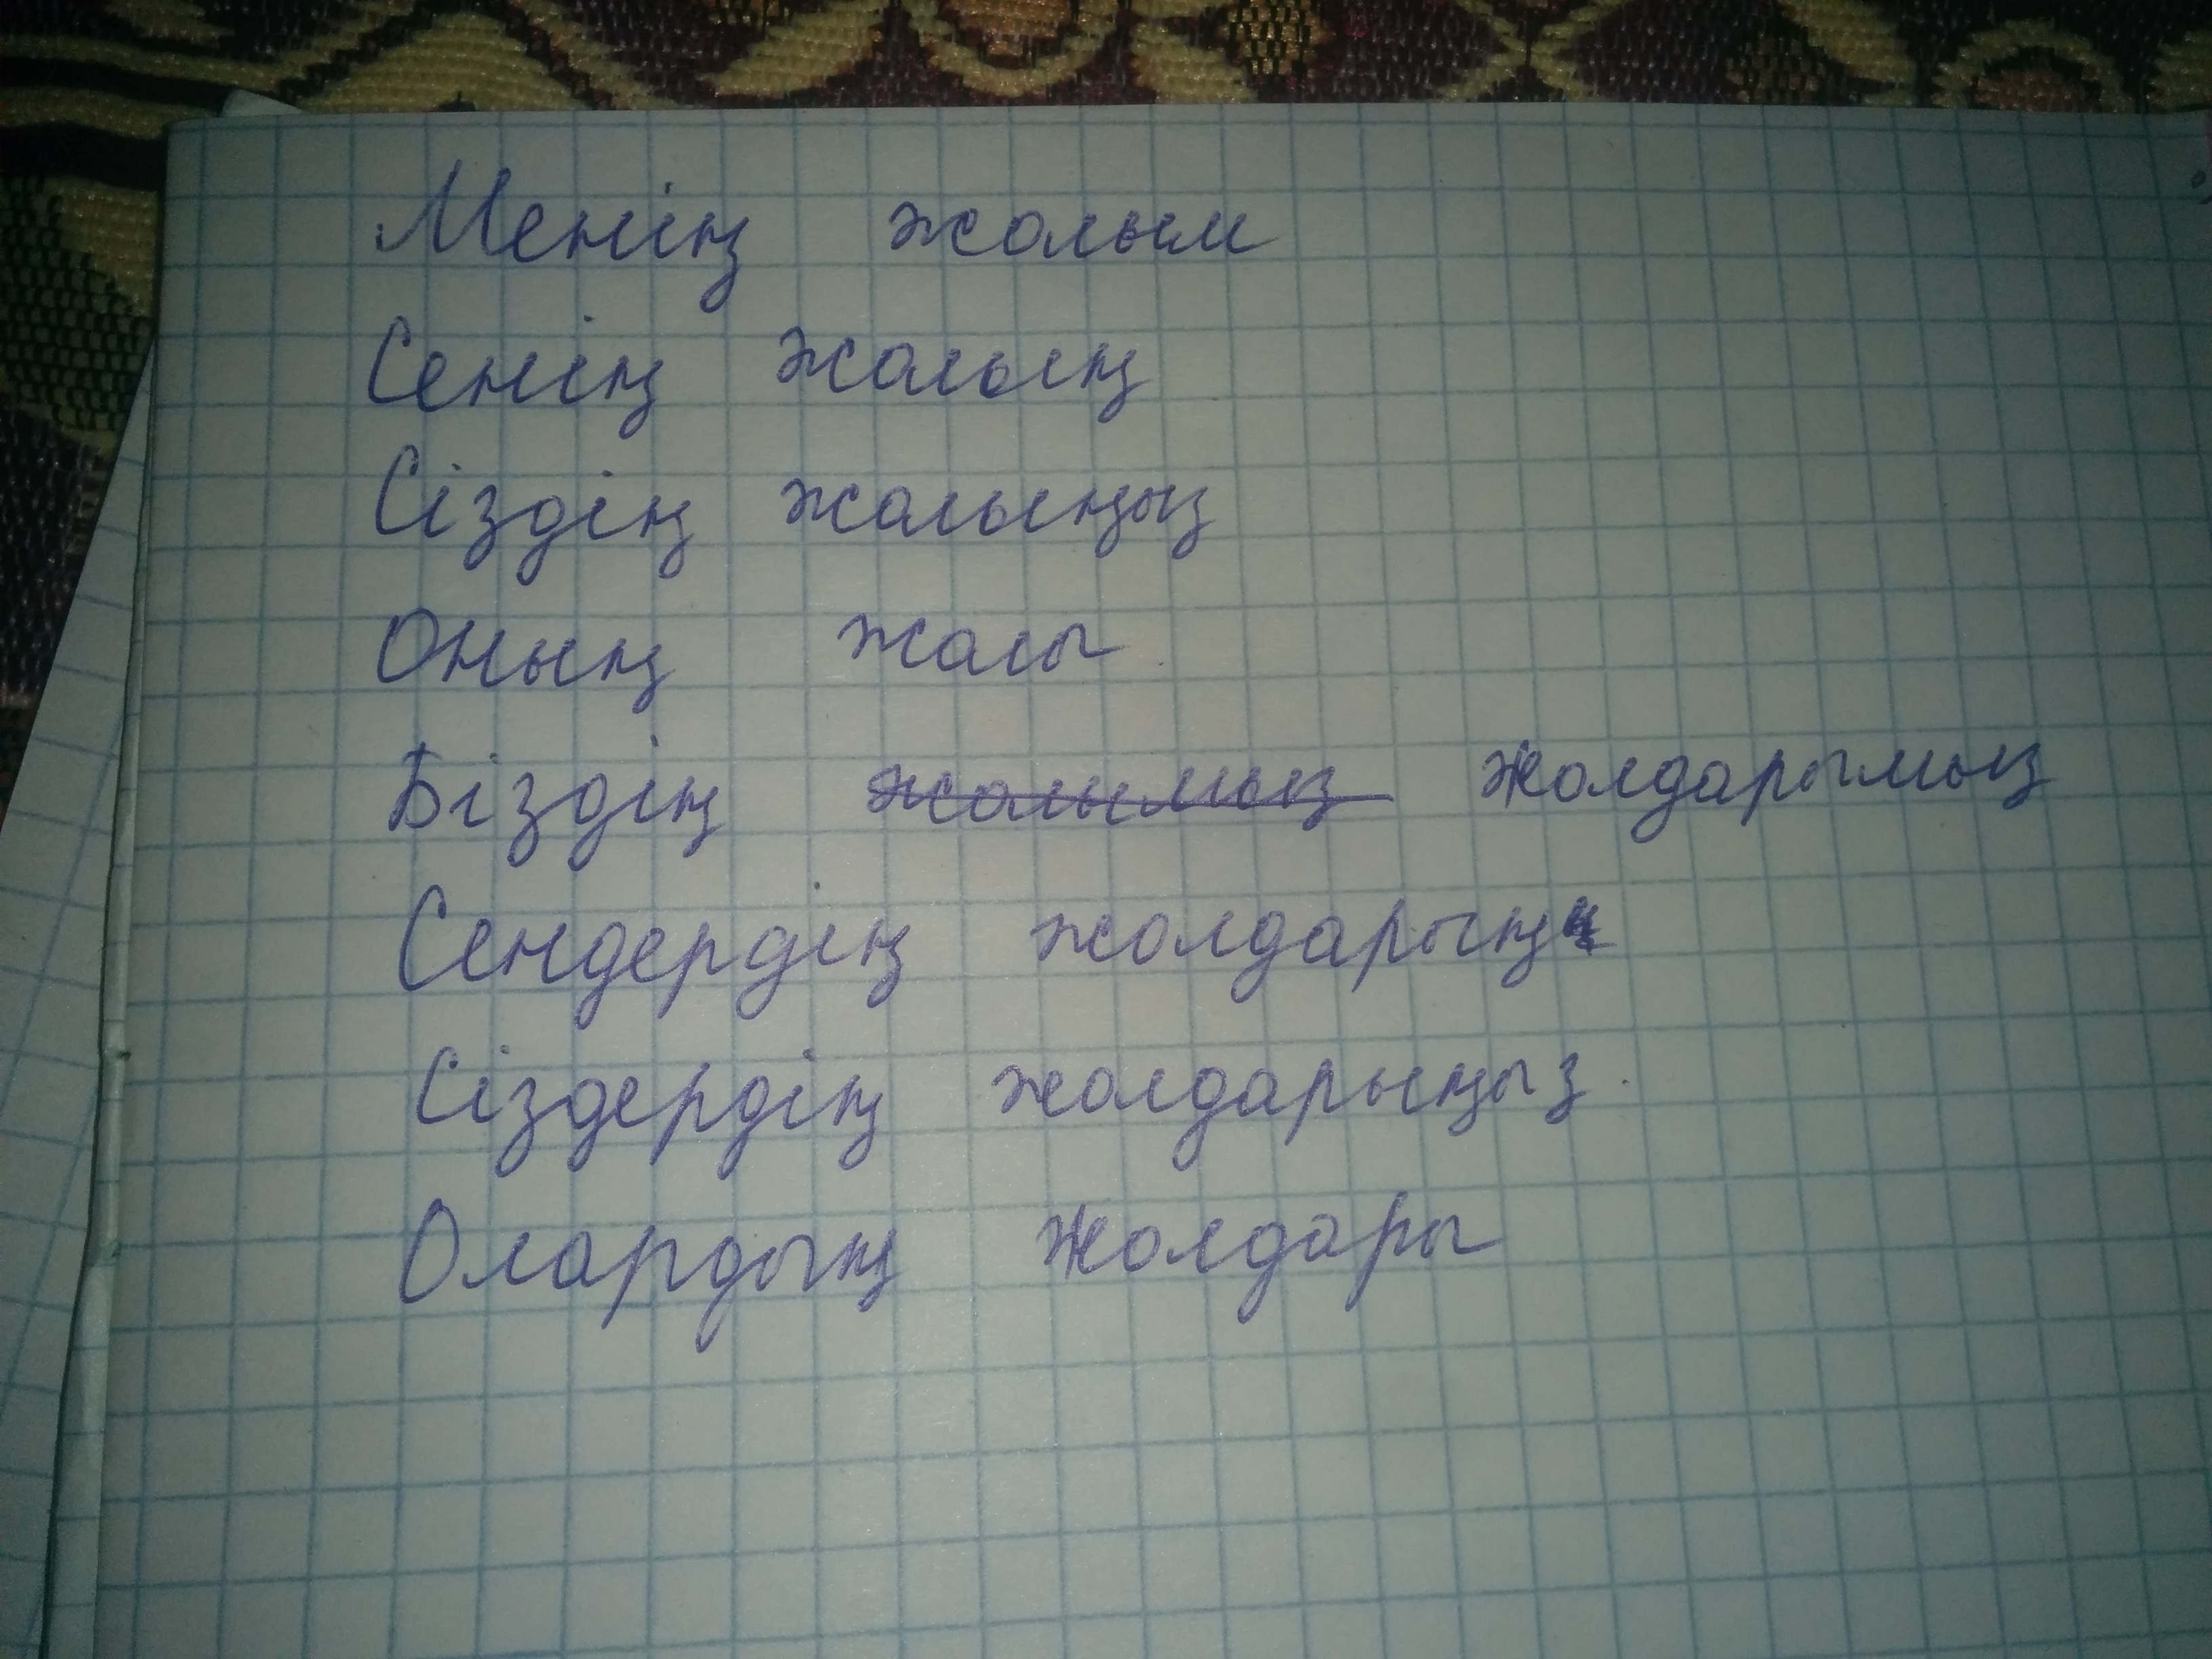 Менің жолым
Сенің жолың
Сіздің жолыңыз
Оның жолы
Біздің жолымыз жолдарымыз
Сендердің жолдарың
Сіздердің жолдарыңыз.
Олардың жолдары